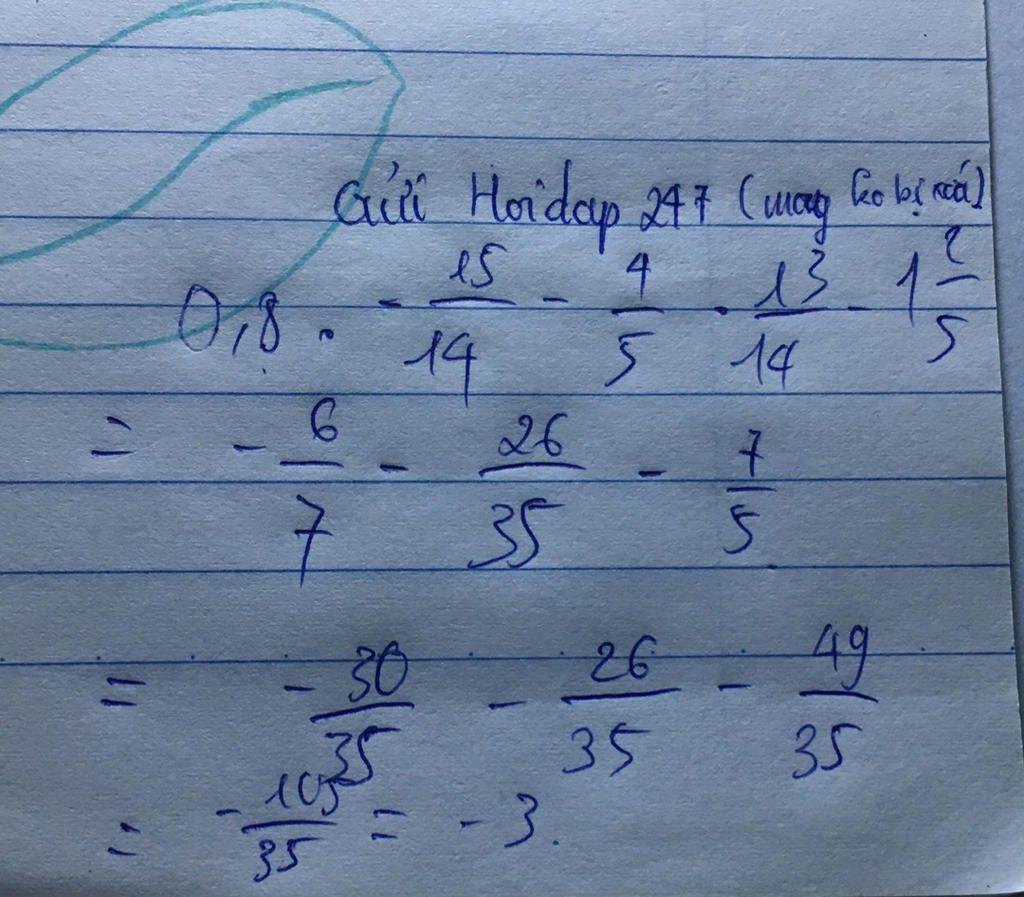 Gửi Hoidap 247 (mong ko bị xoá)
0,8 . - 15/14 - 4/5 . 13/14 - 1 2/5
= - 6/7 - 26/35 - 7/5
= - 30/35 - 26/35 - 49/35
= - 105/35 = - 3.